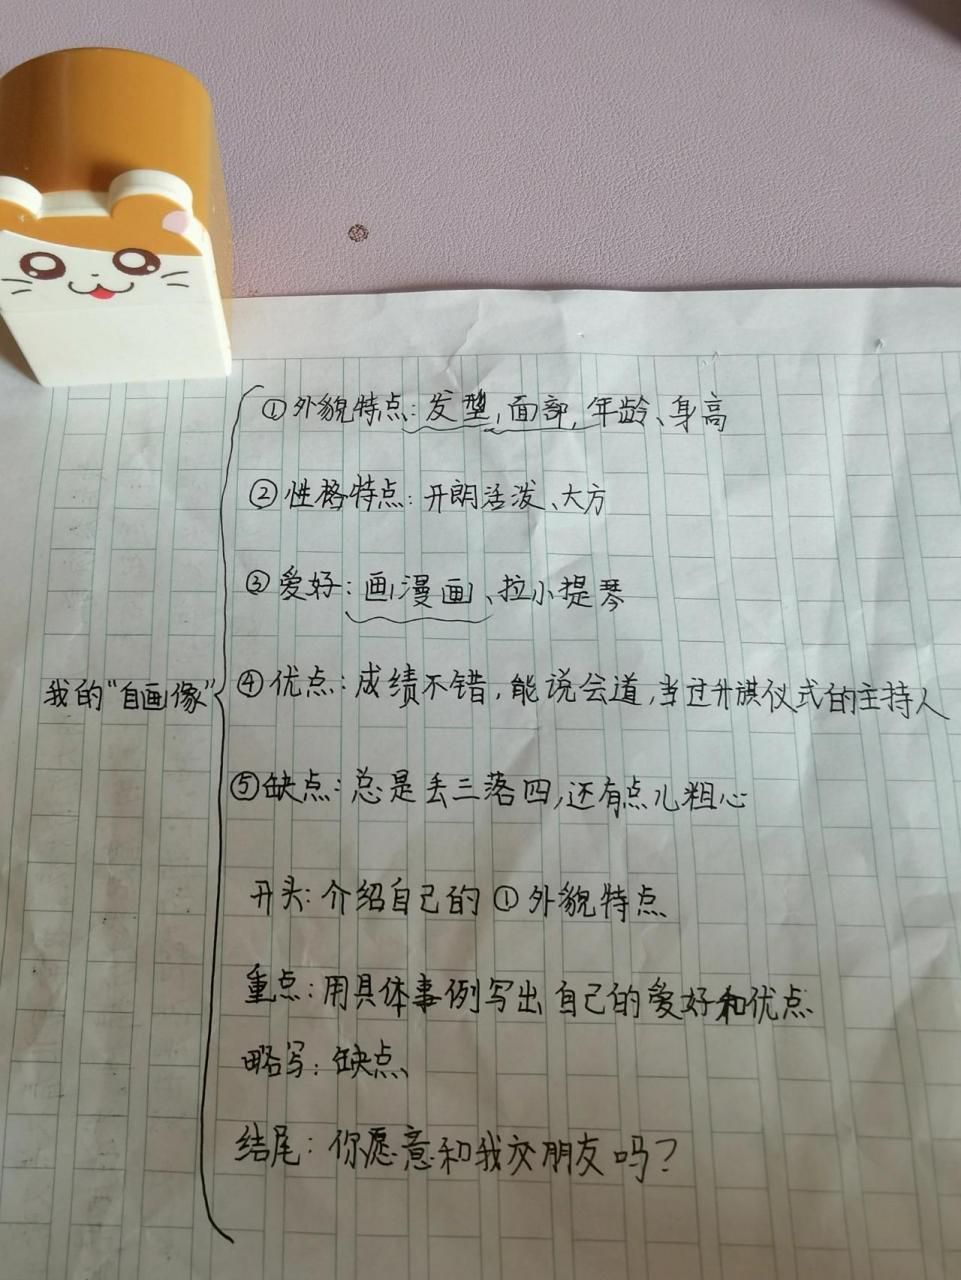 ①外貌特点:发型,面部,年龄、身高
②性格特点:开朗活泼、大方
③爱好:画漫画、拉小提琴
我的“自画像”
④优点:成绩不错,能说会道,当过升旗仪式的主持人
⑤缺点:总是丢三落四,还有点儿粗心
开头:介绍自己的①外貌特点
重点:用具体事例写出自己的爱好和优点
略写:缺点
结尾:你愿意和我交朋友吗?